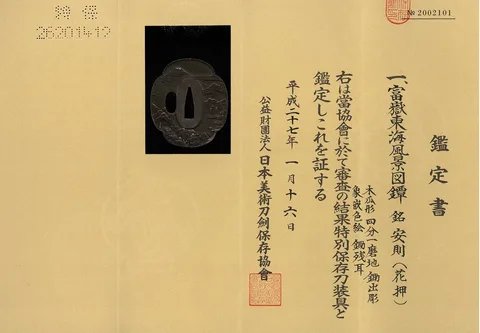 鑑定書
一、富嶽東海風景図鐔 銘 安則(花押)
木瓜形 四分一磨地 鋤出彫
象嵌色絵 鋤残耳
右は當協會に於て審査の結果特別保存刀装具と
鑑定しこれを証する
平成二十七年 一月十六日
公益財團法人 日本美術刀劍保存協會
特保
26201412
№ 2002101